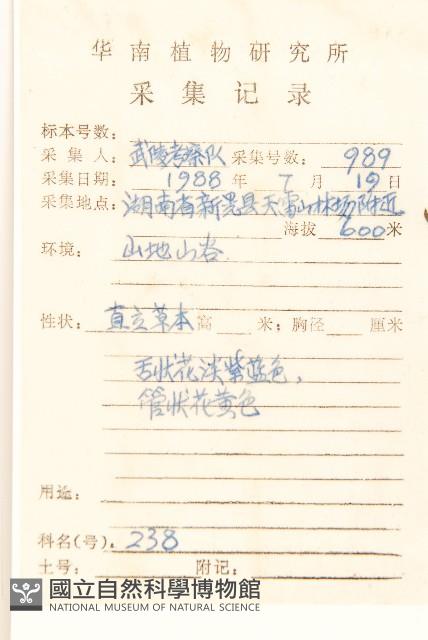 华南植物研究所
采集记录
标本号数：
采集人：武陵考察队 采集号数：989
采集日期：1988年7月19日
采集地点：湖南省新晃县天雷山林场附近
海拔600米
环境：山地山谷.
性状：直立草本 高 米；胸径 厘米
舌状花淡紫蓝色，
管状花黄色
用途：
科名(号).238
土号： 附记：
國立自然科學博物館
NATIONAL MUSEUM OF NATURAL SCIENCE